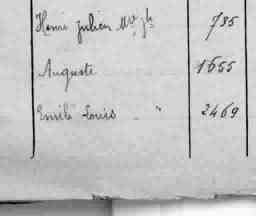 Henri Julien Mie Jh 735
Auguste 1655
Emile Louis " 2469